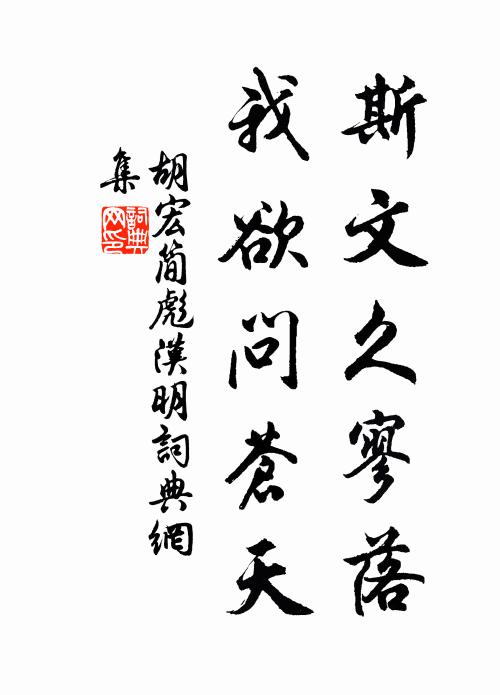 斯文久寥落
我欲問蒼天
胡宏簡彪漢明詞典網
集
詞典
网印